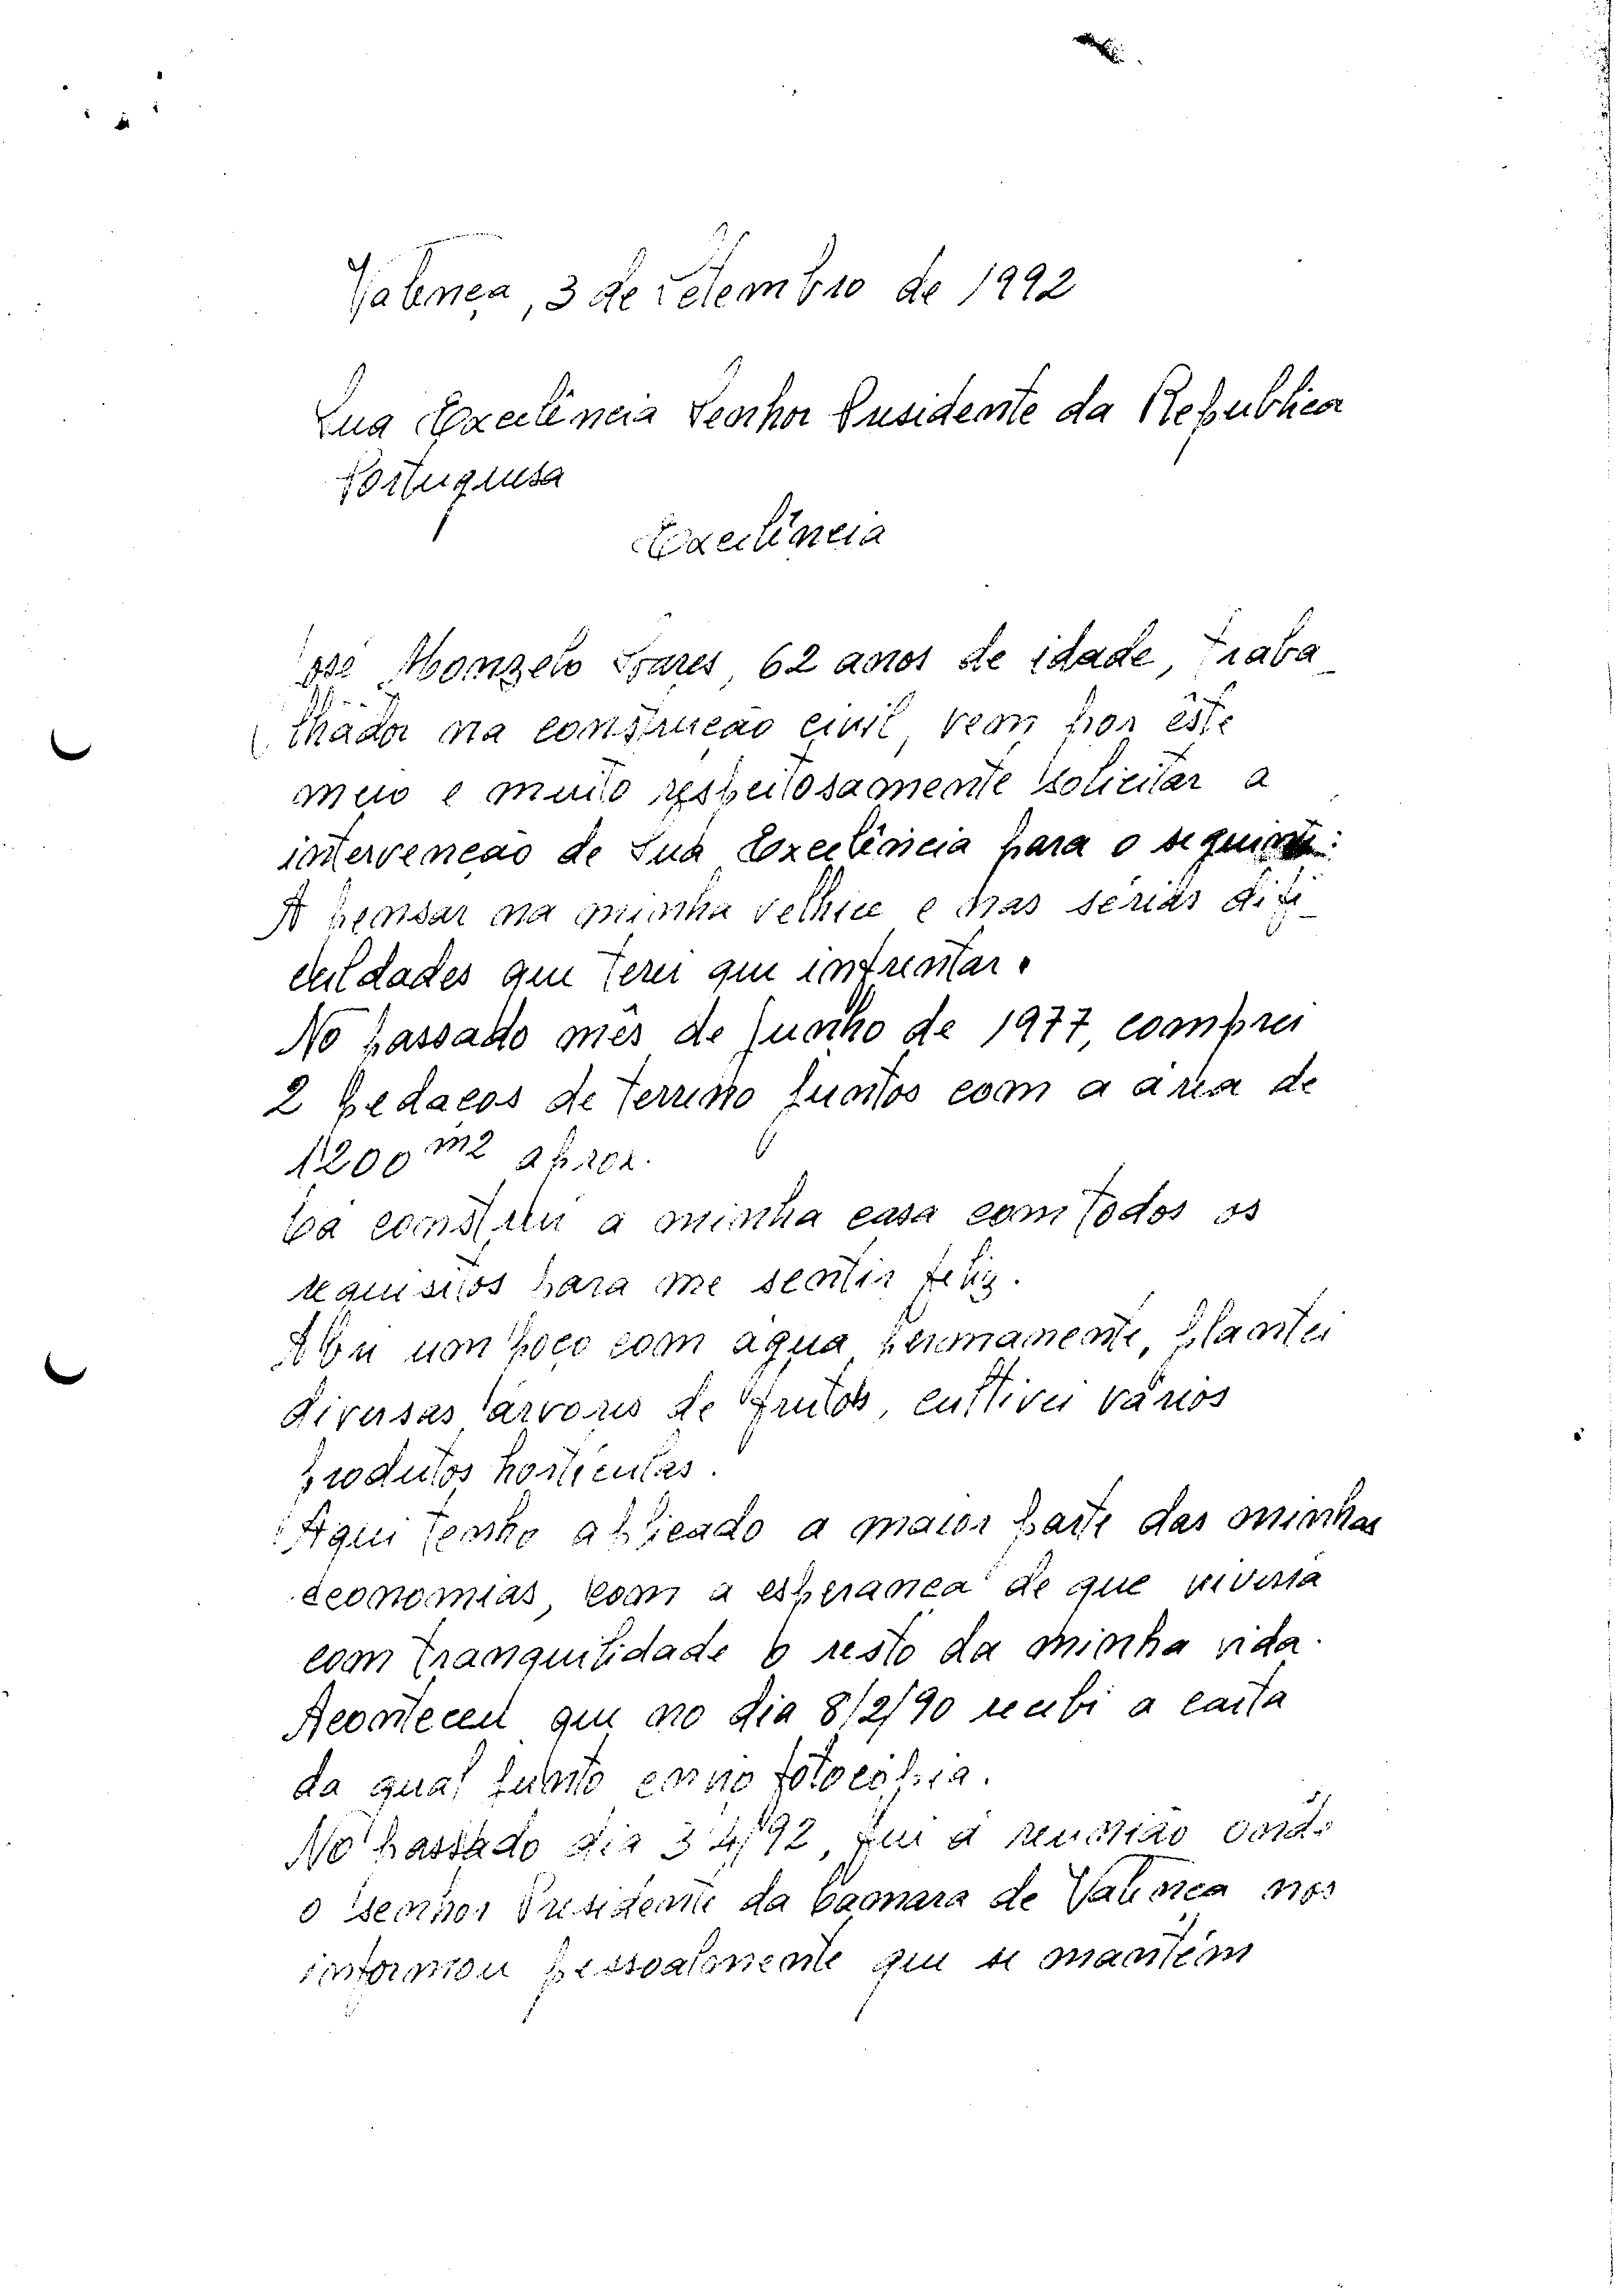 Valença, 3 de Setembro de 1992
Sua Excelência Senhor Presidente da Republica
Portuguesa
Excelência
José Monzelo Soares, 62 anos de idade, traba_
lhador na construção civil, vem por êste
meio e muito respeitosamente solicitar a
intervenção de Sua Excelência para o seguinte:
A pensar na minha velhice e nas sérias difi_
culdades que terei que infrentar.
No passado mês de Junho de 1977, comprei
2 pedaços de terreno juntos com a área de
1200 m2 aprox.
Cá construi a minha casa com todos os
requisitos para me sentir feliz.
Abri um poço com água permamente, plantei
diversas árvores de frutos, cultivei vários
produtos hortículas.
Aqui tenho aplicado a maior parte das minhas
economias, com a esperança de que viveria
com tranquilidade o resto da minha vida.
Aconteceu que no dia 8/2/90 recebi a carta
da qual junto envio fotocópia.
No passado dia 3/4/92, fui á reunião onde
o Senhor Presidente da Camara de Valença nos
informou pessoalmente que se mantém